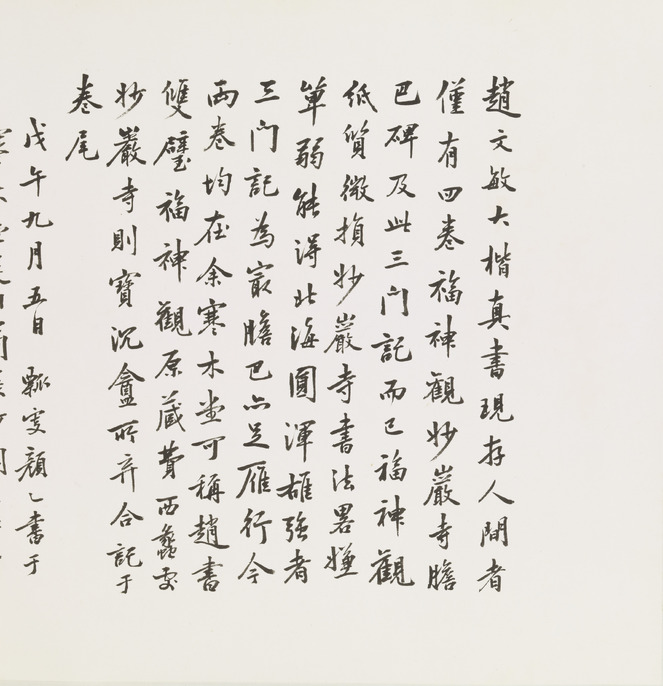 趙文敏大楷真書現存人間者
僅有四卷福神觀妙嚴寺膽
巴碑及此三门記而已福神觀
紙質微損妙嚴寺書法畧嫌
單弱能得北海圓渾雄強者
三门記為最膽巴亦足雁行今
兩卷均在余寒木堂可稱趙書
雙璧福神觀原藏費西蠡處
妙嚴寺則寶沉盦所弃合記于
卷尾
戊午九月五日瓢叟顏乙書于